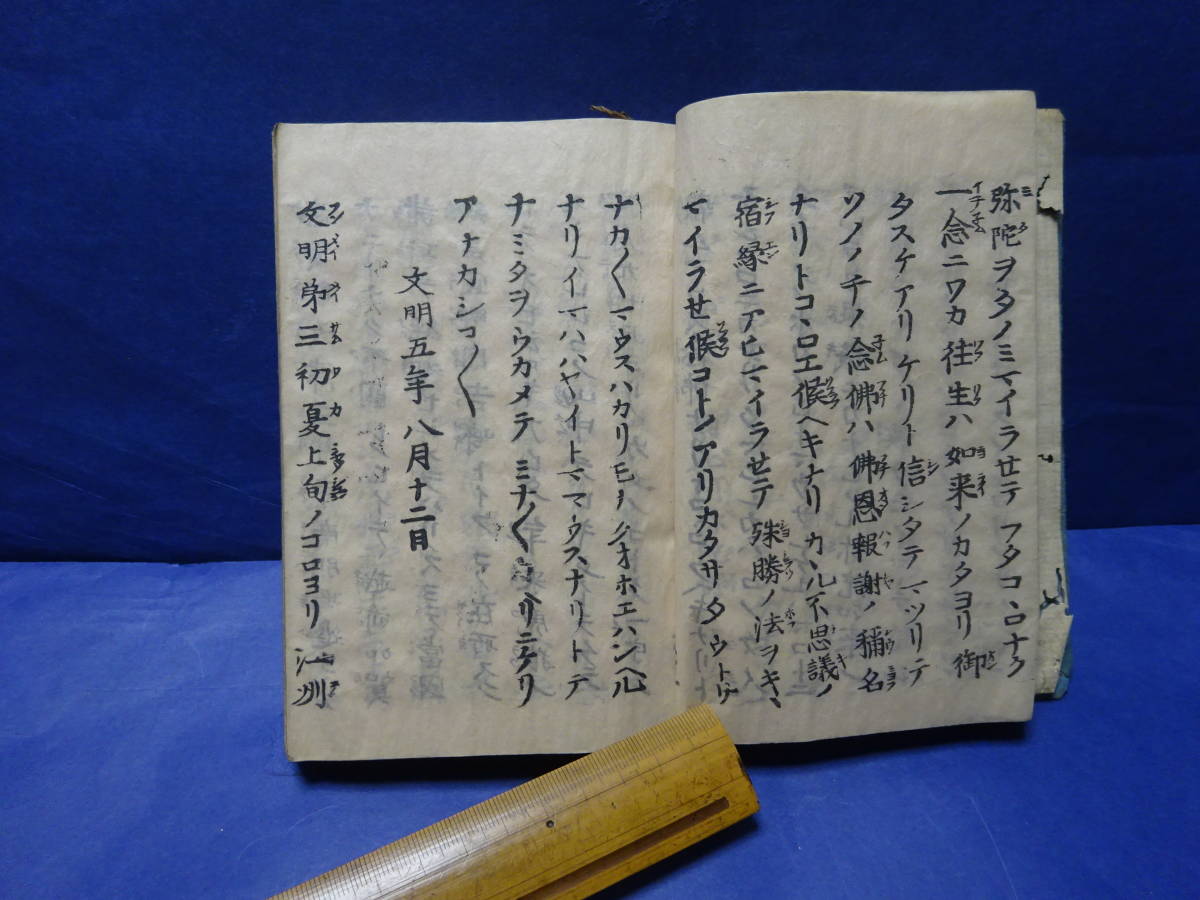 弥陀ヲタノミマイラセテフタコヽロナク
一念ニワカ往生ハ如来ノカタヨリ御
タスケアリケリト信シタテマツリテ
ソノノチノ念佛ハ佛恩報謝ノ稱名
ナリトコヽロエ候ヘキナリカヽル不思議ノ
宿縁ニアヒマイラセテ殊勝ノ法ヲキヽ
マイラセ候コトノアリカタサタウトサ
ナカ〱マウスハカリモナクオホエハンヘル
ナリイマハハヤイトママウスナリトテ
ナミタヲウカメテミナ〱カヘリニケリ
アナカシコ〱
文明五年八月十二日
文明第三初夏上旬ノコロヨリ江州